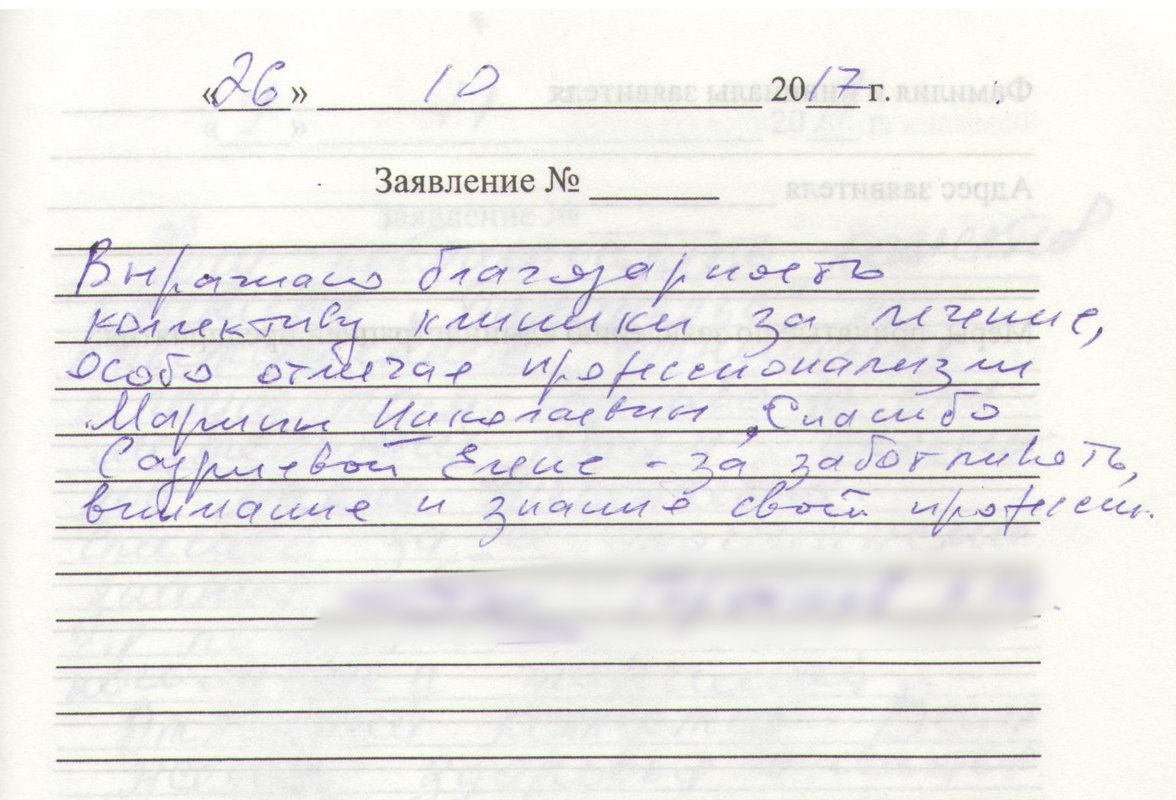 «26» 10 2017 г.
Заявление №
Выражаю благодарность
коллективу клиники за лечение,
Особо отмечая профессионализм
Марины Николаевны. Спасибо
Елене - за заботливость,
внимание и знание своей профессии.